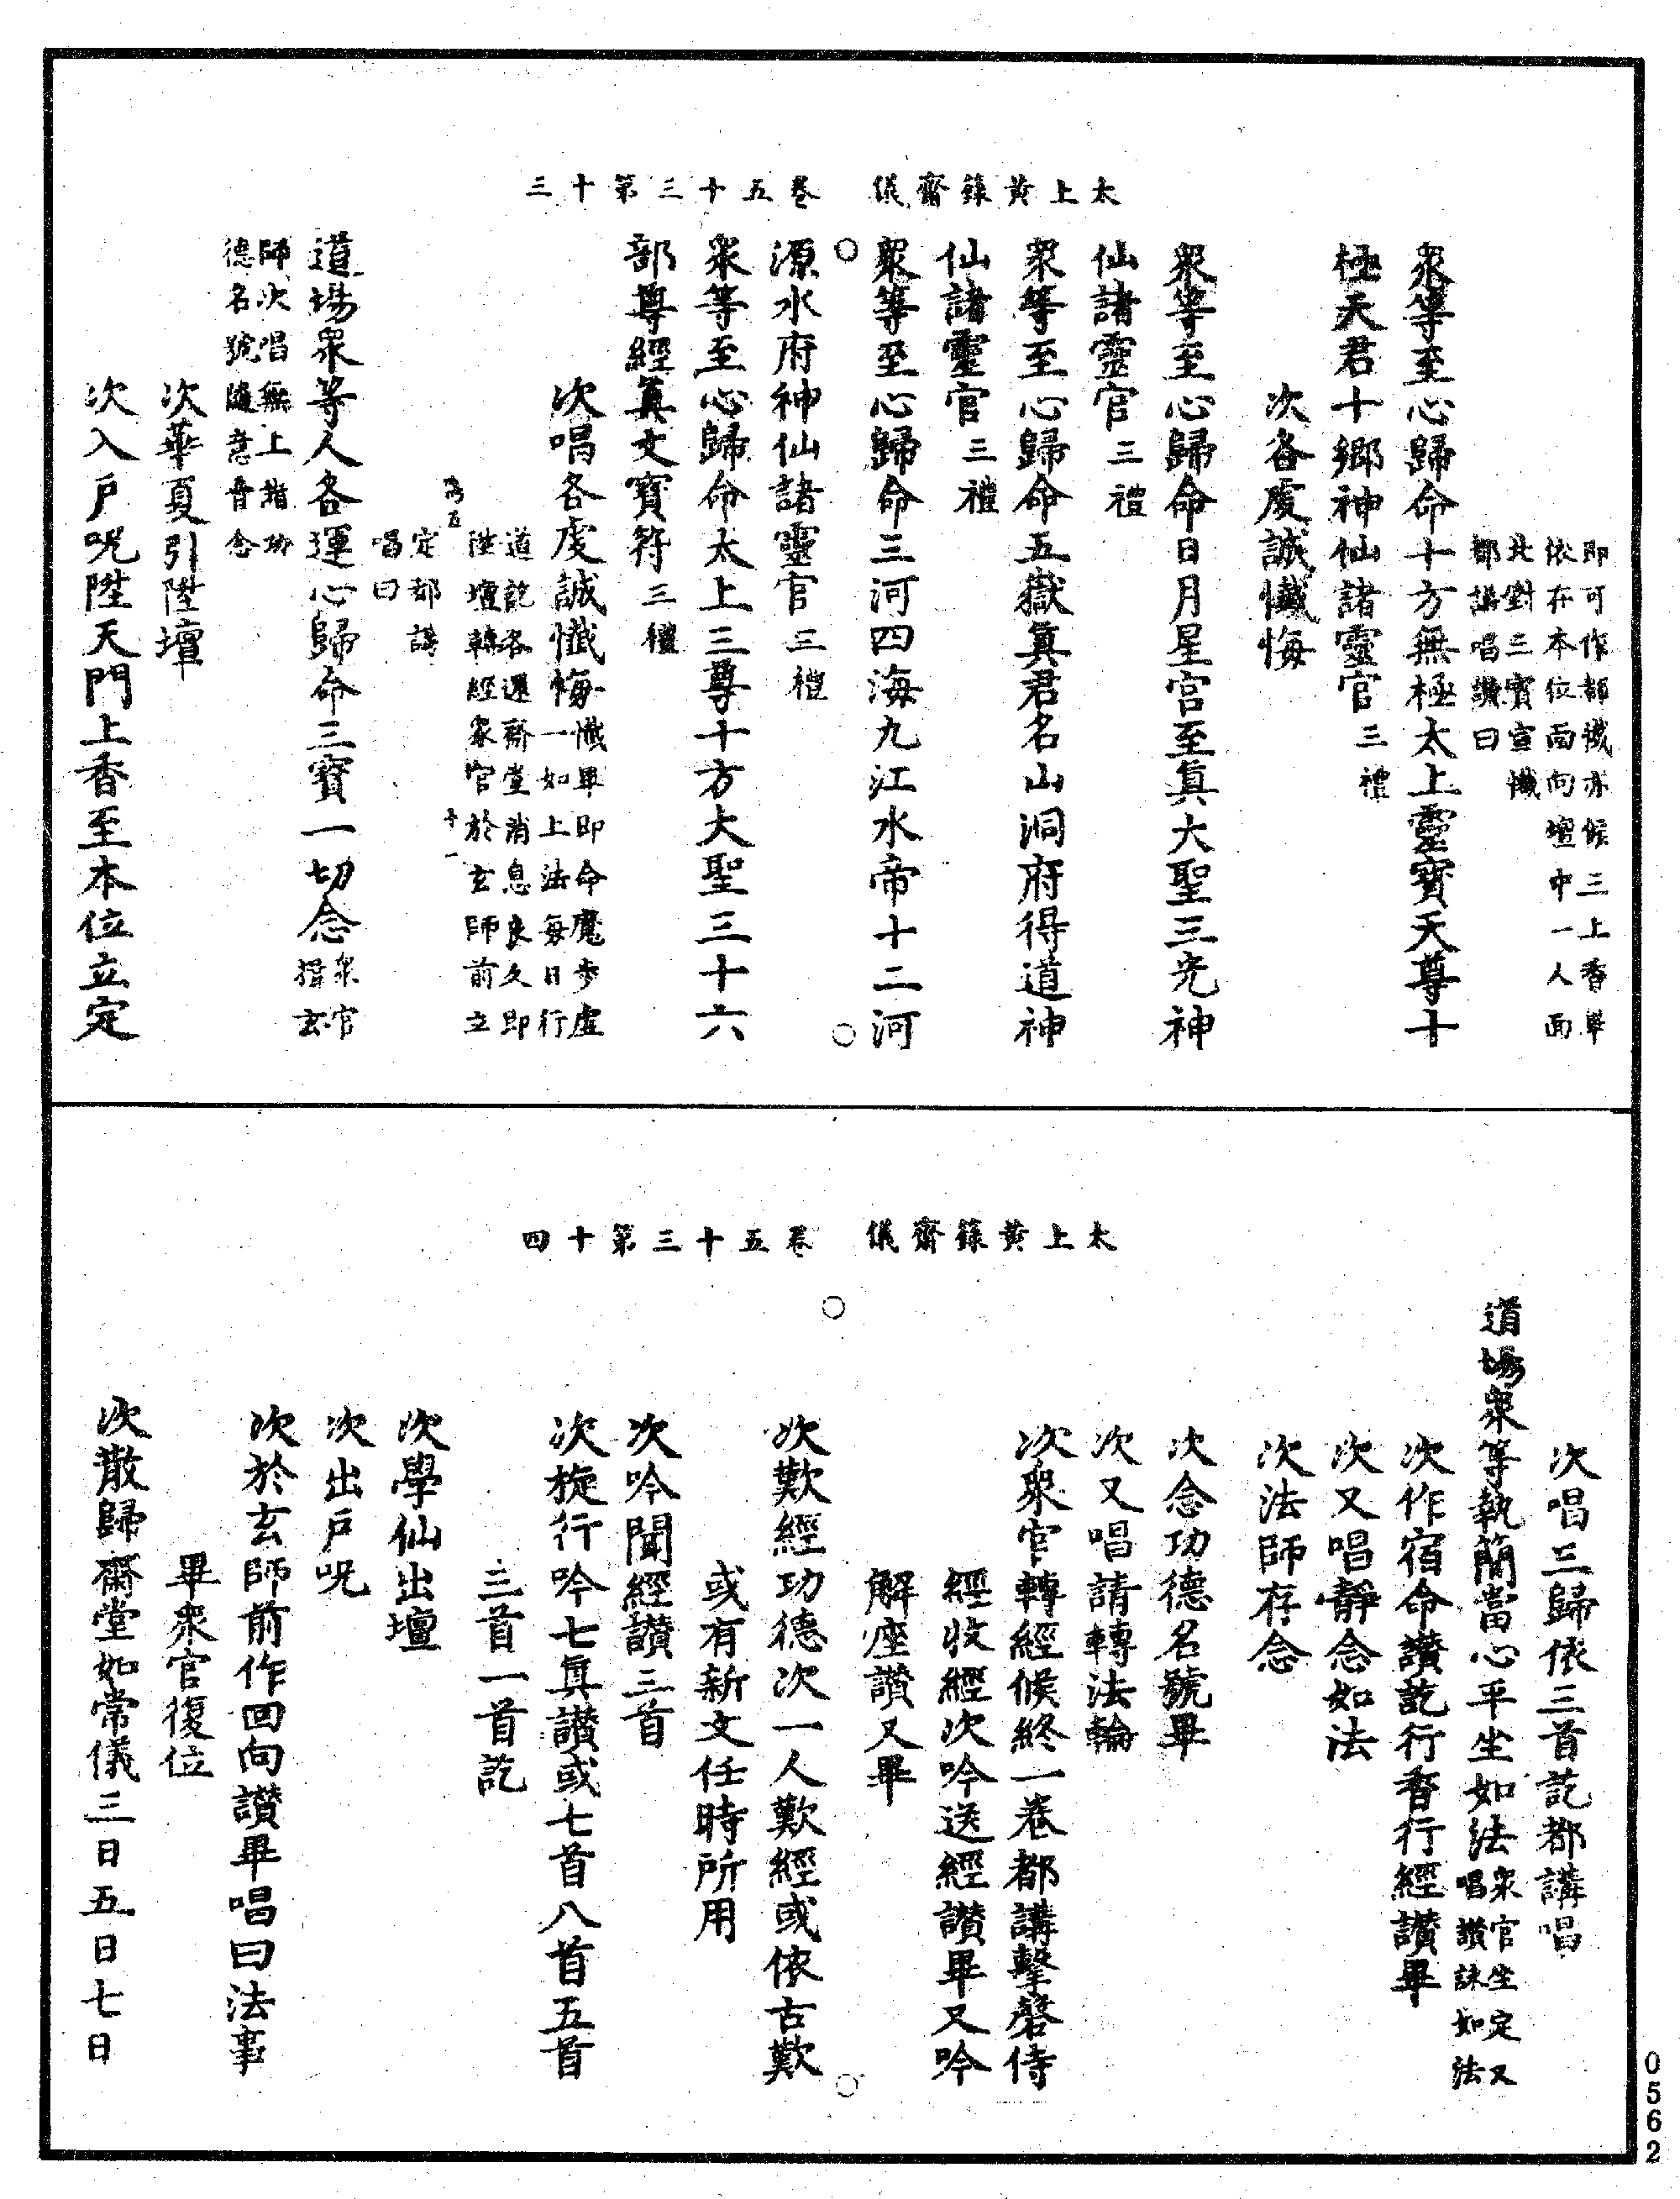 太上黃籙齋儀　卷五十三第十三
即可作都懺亦候三上香畢
依在本位面向壇中一人面
北對三寶宣懺
都講唱讚曰
眾等至心歸命十方無極太上靈寶天尊十
極天君十鄉神仙諸靈官三禮
次各虔誠懺悔
眾等至心歸命日月星宮至真大聖三光神
仙諸靈官三禮
眾等至心歸命五嶽真君名山洞府得道神
仙諸靈官三禮
眾等至心歸命三河四海九江水帝十二河
源水府神仙諸靈官三禮
眾等至心歸命太上三尊十方大聖三十六
部尊經真文寶符三禮
次唱各虔誠懺悔懺畢即命魔步虛
一如上法每日行
道訖各還齋堂消息良久即
陞壇轉經眾官於玄師前立
定都講
唱曰
道場眾等人各運心歸命三寶一切念眾官
揖玄
師次唱無上諸功
德名號隨意音念
次華夏引陞壇
次入戶呪陞天門上香至本位立定
太上黃籙齋儀　卷五十三第十四
次唱三歸依三首訖都講唱
道場眾等執簡當心平坐如法眾官坐定又
唱讚詠如法
次作宿命讚訖行香行經讚畢
次又唱靜念如法
次法師存念
次念功德名號畢
次又唱請轉法輪
次眾官轉經候終一卷都講擊磬侍
經收經次吟送經讚畢又吟
解座讚又畢
次歎經功德次一人歎經或依古歎
或有新文任時所用
次吟聞經讚三首
次旋行吟七真讚或七首八首五首
三首一首訖
次學仙出壇
次出戶呪
次於玄師前作回向讚畢唱曰法事
畢眾官復位
次散歸齋堂如常儀三日五日七日
0562